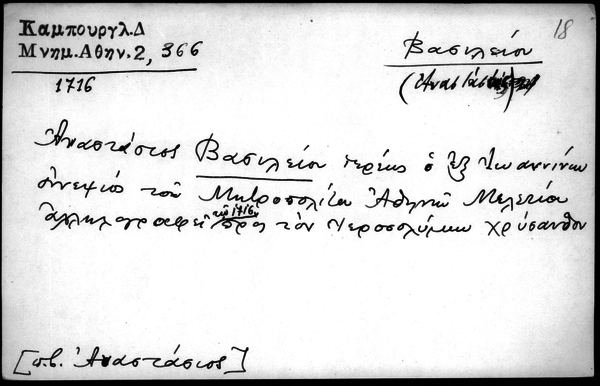 Καμπουργλ.Δ
Μνημ.Αθην.2, 366
1716
18
Βασιλείου
(Αναστάσιος)
Ἀναστάσιος Βασιλείου ἱερεὺς ὁ ἐξ Ἰωαννίνων
ἀνεψιός τοῦ Μητροπολίτου Ἀθηνῶν Μελετίου
ἀλληλογραφεῖ τῷ 1716 πρὸς τὸν Ἱεροσολύμων Χρύσανθον
[π.β. Ἀναστάσιος]